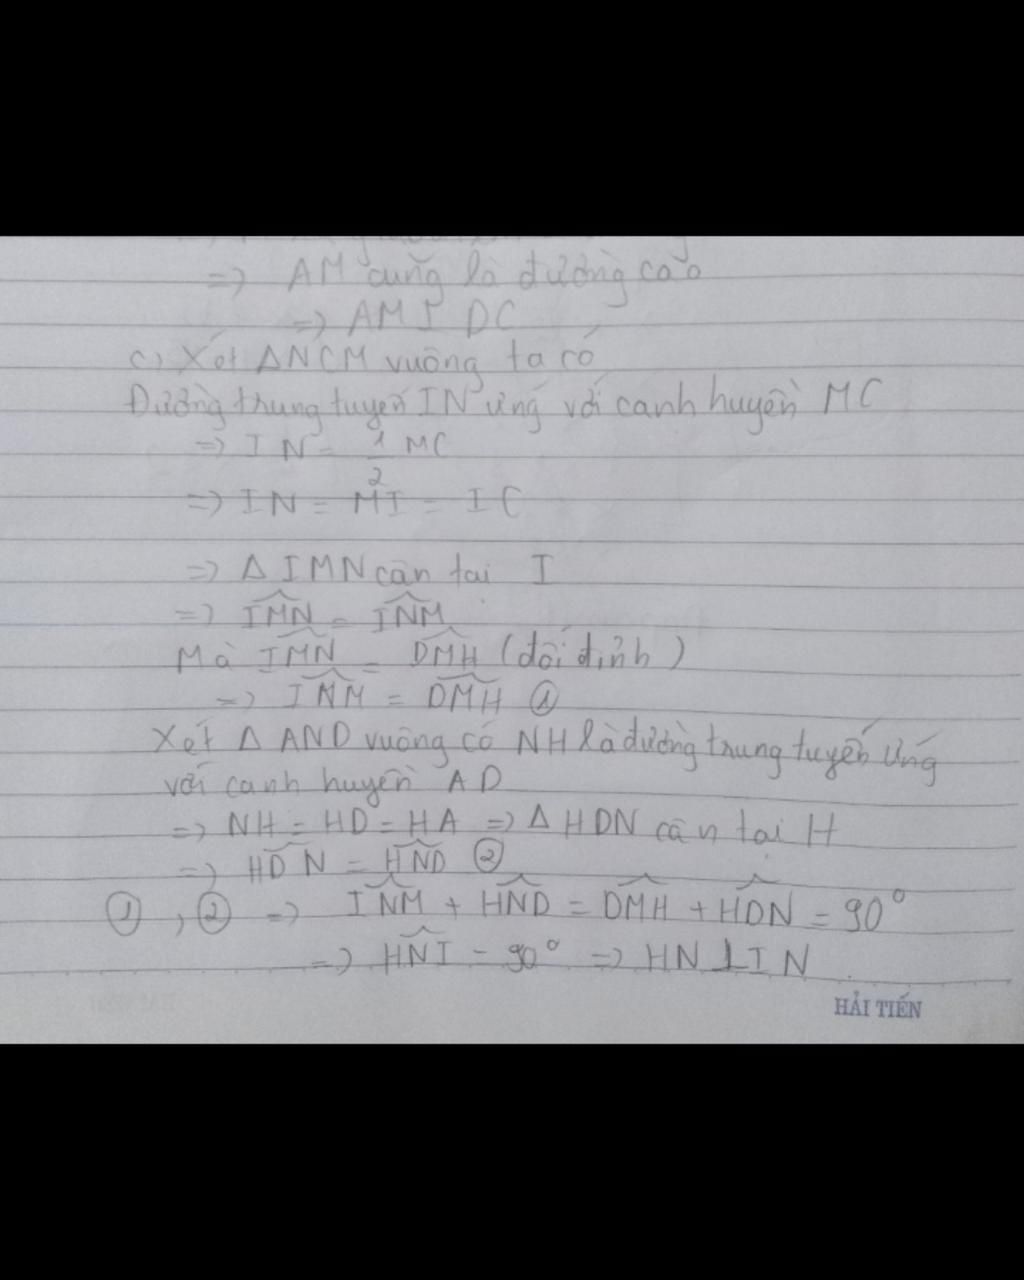 => AM cũng là đường cao
=> AM ⊥ DC
c) Xét ΔNCM vuông ta có
Đường trung tuyến IN ứng với cạnh huyền MC
=> IN = 1/2 MC
=> IN = MI = IC
=> Δ IMN cân tại I
=> IMN̂ = INM̂
Mà IMN̂ = DMĤ (đối đỉnh)
=> INM̂ = DMĤ ①
Xét Δ AND vuông có NH là đường trung tuyến ứng
với cạnh huyền AD
=> NH = HD = HA => Δ HDN cân tại H
=> HDN̂ = HND̂ ②
①, ② => INM̂ + HND̂ = DMĤ + HDN̂ = 90°
=> HNÎ = 90° => HN ⊥ IN
HẢI TIẾN